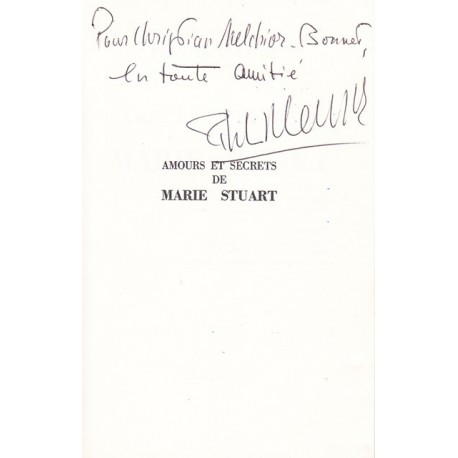 Pour Christian Melchior-Bonnet,
en toute amitié
AMOURS ET SECRETS
DE
MARIE STUART